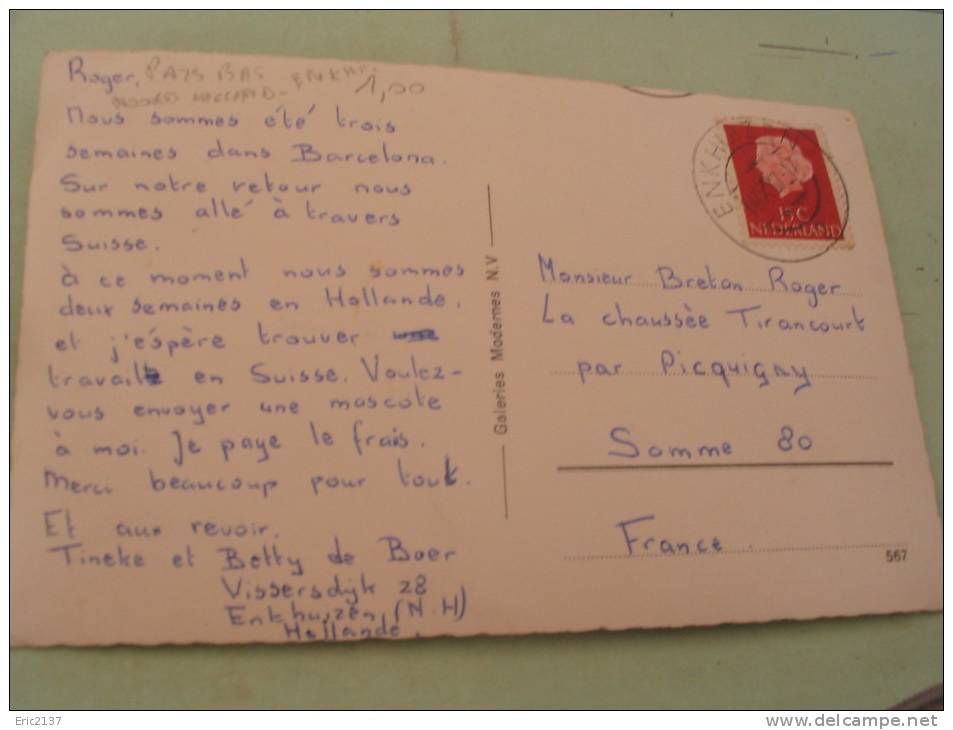 Roger, PAYS BAS
1,00
Nous sommes été trois
semaines dans Barcelona.
Sur notre retour nous
sommes allé à travers
Suisse.
à ce moment nous sommes
deux semaines en Hollande.
et j'éspère trouver
travail en Suisse. Voulez-
vous envoyer une mascote
à moi. Je paye le frais.
Merci beaucoup pour tout.
Et aux revoir.
Tineke et Betty de Boer
Vissersdijk 28
Enkhuizen (N.H)
Hollande.
Galeries Modernes N.V
ENKH
15C
NEDERLAND
Monsieur Breton Roger
La chaussée Tirancourt
par Picquigny
Somme 80
France
567
Eric2137
www.delcampe.net